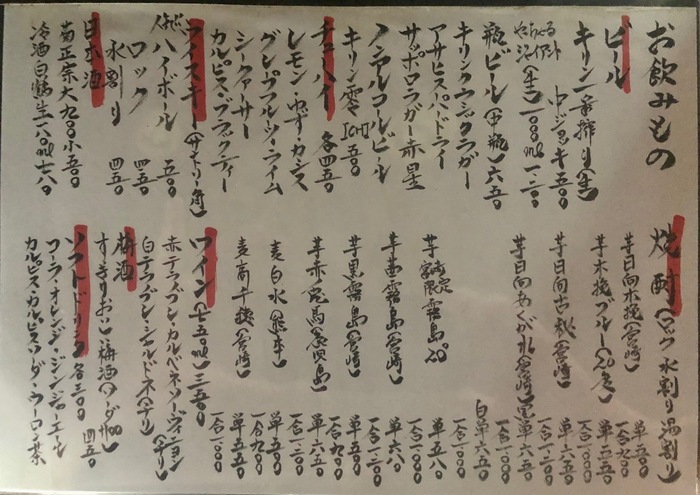 お飲みもの
ビール
キリン一番搾り(生)
中ジョッキ 五五〇
(生)一〇〇〇ml 一、二〇〇
瓶ビール(中瓶)六五〇
キリンクラシックラガー
アサヒスーパードライ
サッポロラガー赤星
ノンアルコールビール
キリン零ICHI 五〇〇
チューハイ 各四五〇
レモン・ゆず・カシス
グレープフルーツ・ライム
シークァーサー
カルピス・ブラックティー
ウイスキー(サントリー角)
ハイボール 五〇〇
ロック 四五〇
水割り 四五〇
日本酒
菊正宗 大九〇〇 小五〇〇
冷酒 白鶴生一八〇ml 七八〇
焼酎(ロック 水割り 湯割り)
芋 日向木挽(宮崎) 単五〇〇 一合九〇〇
芋 木挽ブルー(宮崎) 単五五〇 一合一、〇〇〇
芋 日向古秘(宮崎) 単六五〇 一合一、二〇〇
芋 日向あくがれ(宮崎)
芋 宮崎限定 霧島 単五八〇 一合一、〇〇〇
芋 茜霧島(宮崎) 単六八〇 一合一、二〇〇
芋 黒霧島(宮崎) 単五〇〇 一合九〇〇
芋 赤兎馬(鹿児島) 単六五〇 一合一、二〇〇
麦 白水(熊本) 単五〇〇 一合九〇〇
麦 高千穂(宮崎) 単五五〇 一合一、〇〇〇
ワイン(七五〇ml)三、五〇〇
赤 テラプレン・カルベネ・ソーヴィニヨン(チリ)
白 テラプレン・シャルドネ(チリ)
梅酒
すっきりおいしい梅酒(ソーダ割) 四五〇
ソフトドリンク 各三〇〇
コーラ・オレンジ・ジンジャエール
カルピス・カルピスソーダ・ウーロン茶